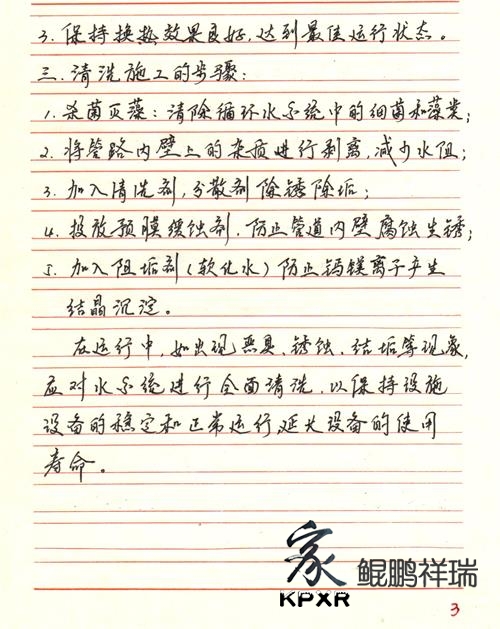 3. 保持换热效果良好,达到最佳运行状态。
三.清洗施工的步骤:
1. 杀菌灭藻:清除循环水系统中的细菌和藻类;
2. 将管路内壁上的杂质进行剥离,减少水阻;
3. 加入清洗剂,分散剂除锈除垢;
4. 投放预膜缓蚀剂,防止管道内壁腐蚀生锈;
5. 加入阻垢剂(软化水)防止钙镁离子产生
结晶沉淀。
在运行中,如出现恶臭、锈蚀、结垢等现象,
应对水系统进行全面清洗,以保持设施
设备的稳定和正常运行,延长设备的使用
寿命。
家
鲲鹏祥瑞
KPXR
3